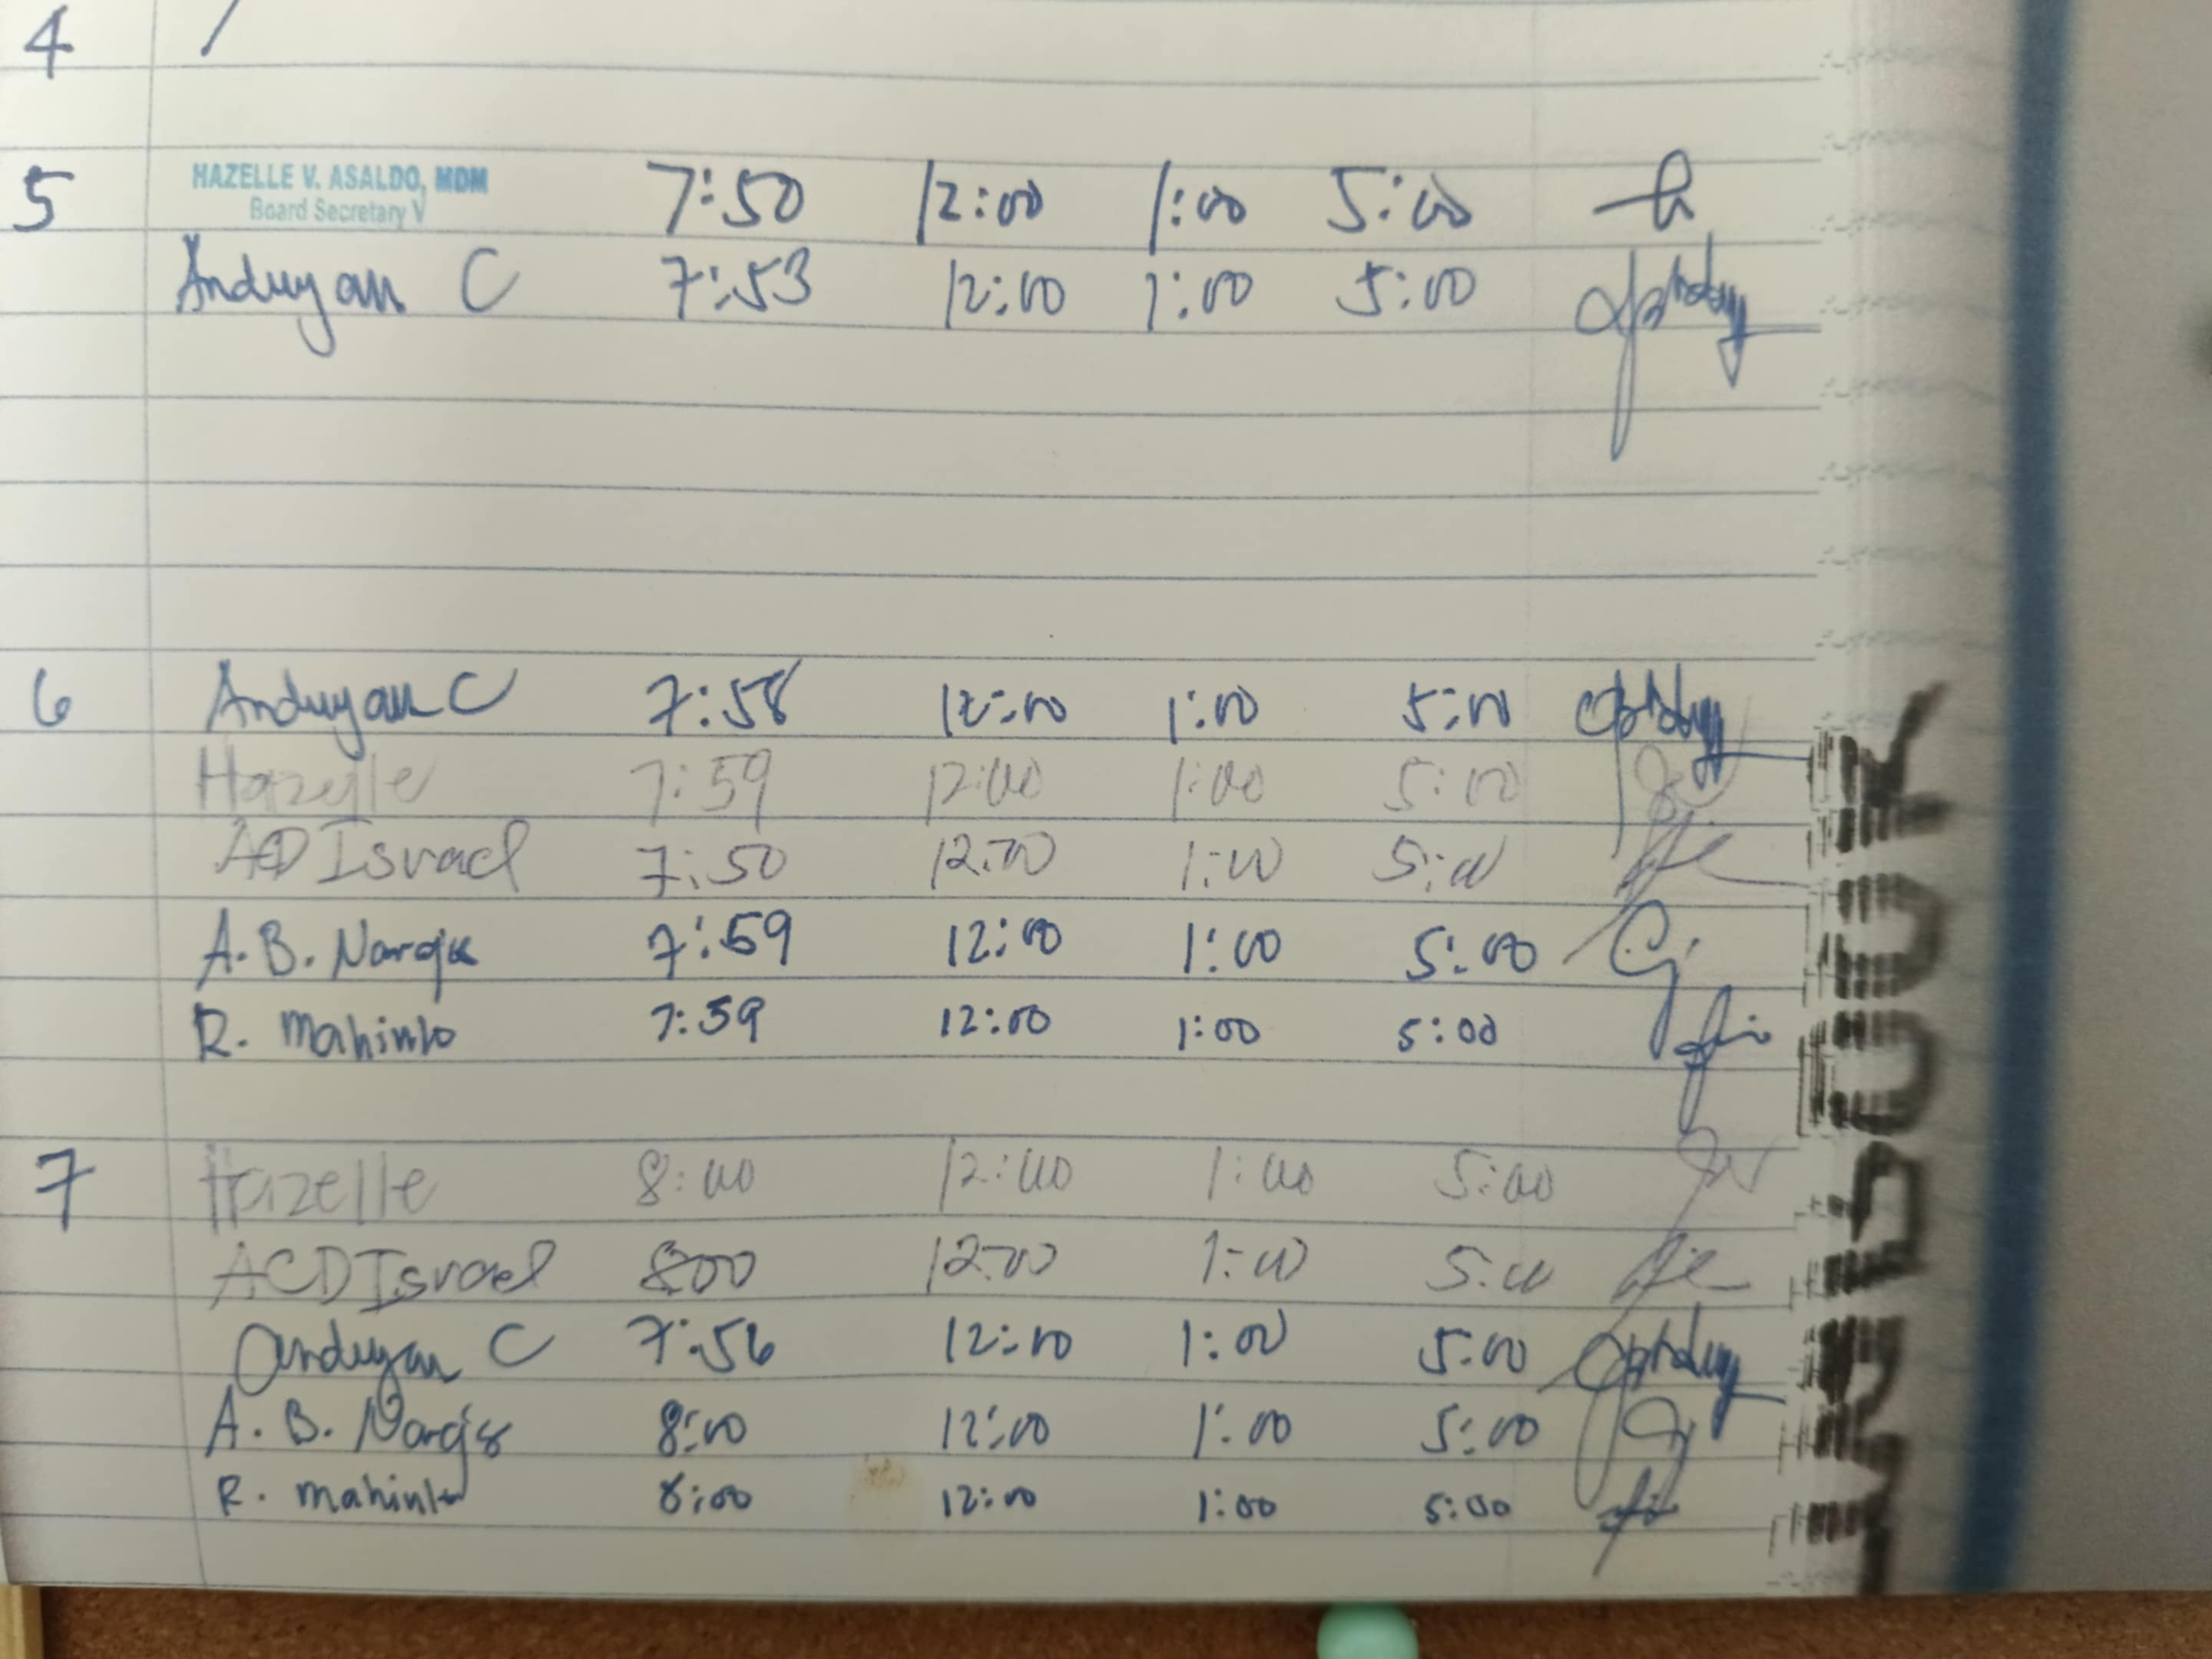 4 /
5 HAZELLE V. ASALDO, MDM 7:50 12:00 1:00 5:00
Board Secretary V
Anduyan C 7:53 12:00 1:00 5:00
6 Anduyan C 7:58 12:00 1:00 5:00
Hazelle 7:59 12:00 1:00 5:00
ACD Israel 7:50 12:00 1:00 5:00
A. B. 7:59 12:00 1:00 5:00
R. Mahinlo 7:59 12:00 1:00 5:00
7 Hazelle 8:00 12:00 1:00 5:00
ACD Israel 800 12:00 1:00 5:00
Anduyan C 7:56 12:00 1:00 5:00
A. B. 8:00 12:00 1:00 5:00
R. Mahinlo 8:00 12:00 1:00 5:00
LOGBOOK